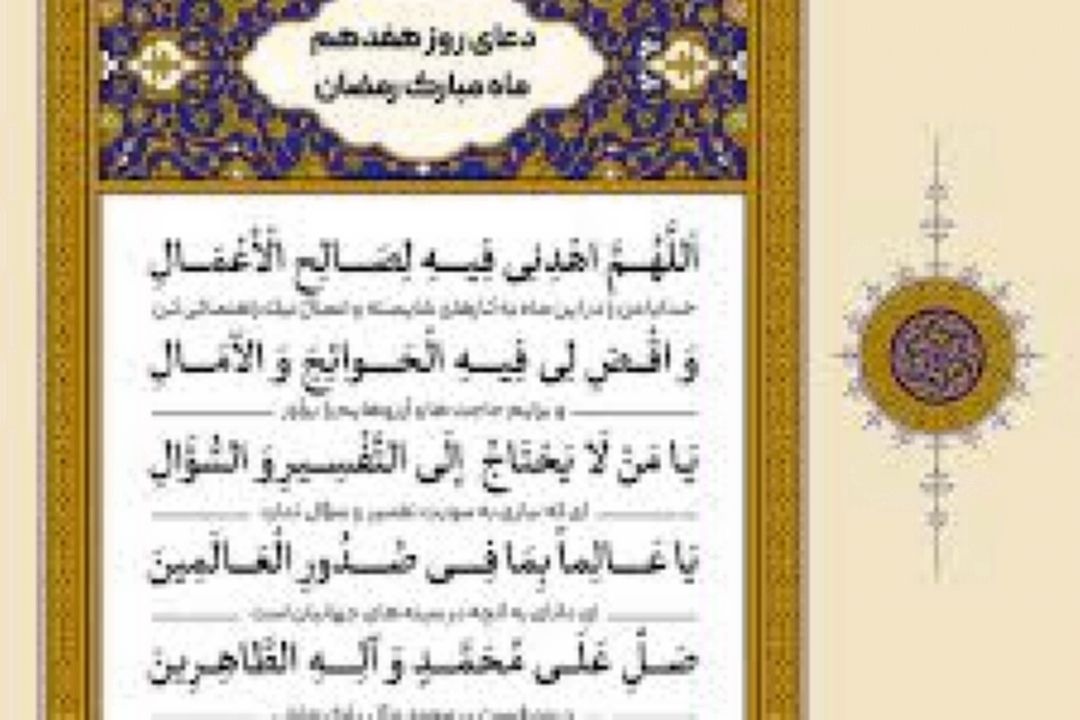 دعای روز هفدهم
ماه مبارک رمضان
اَللّٰهُمَّ اهْدِنِی فِیـهِ لِصَـالِحِ الْأَعْمَـالِ
خدایا من را در این ماه به کارهای شایسته و اعمال نیک راهنمائی کن
وَ اقْـضِ لِی فِیـهِ الْحَـوائِجَ وَ الْآمَـالِ
و برایم حاجت ها و آرزوهایم را برآور
یَا مَنْ لَا یَحْتَاجُ إِلَی التَّفْسِـیرِ وَ السُّؤَالِ
ای که نیازی به سویت تفسیر و سؤال ندارد
یَا عَـالِماً بِمَا فِـی صُـدُورِ الْعَـالَمِینَ
ای دانای به آنچه در سینه های جهانیان است
صَـلِّ عَلَـی مُحَمَّـدٍ وَ آلِـهِ الطَّاهِـرِینَ